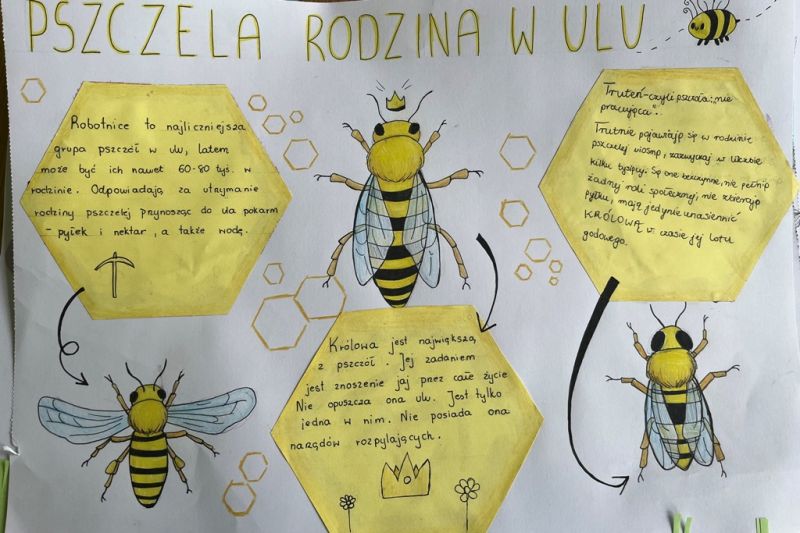 PSZCZELA RODZINA W ULU
Robotnice to najliczniejsza
grupa pszczół w ulu, latem
może być ich nawet 60-80 tyś. w
rodzinie. Odpowiadają za utrzymanie
rodziny pszczelej przynosząc do ula pokarm
- pyłek i nektar, a także wodę.
Królowa jest największą
z pszczół. Jej zadaniem
jest znoszenie jaj przez całe życie
Nie opuszcza ona ulu. Jest tylko
jedna w nim. Nie posiada ona
narządów rozpylających.
Truteń-czyli pszczoła „nie
pracująca".
Trutnie pojawiają się w rodzinie
pszczelej wiosną, zazwyczaj w liczbie
kilku tysięcy. Są one bezczynne, nie pełnią
żadnej roli społecznej, nie zbierają
pyłku, mają jedynie unasiennić
KRÓLOWĄ w czasie jej lotu
godowego.